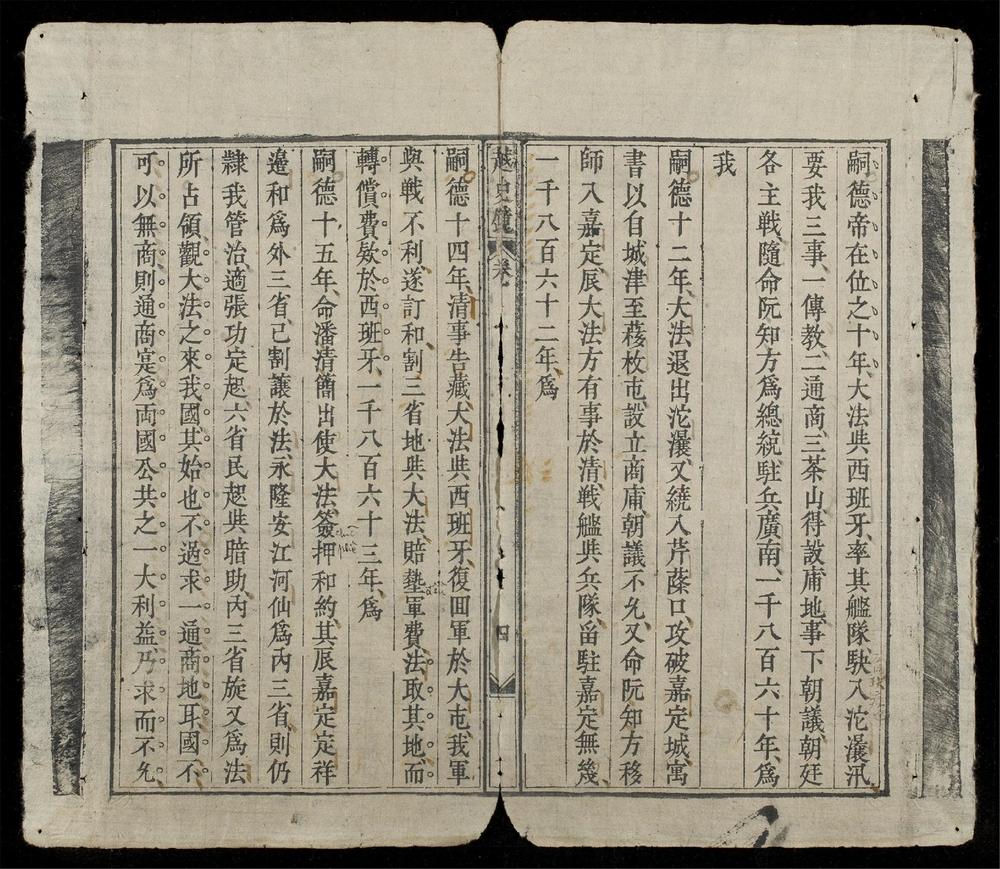 嗣德帝在位之十年、大法与西班牙、率其艦隊、駛入沱㶞汛、
要我三事、一傳教、二通商、三茶山得設庯地、事下朝議、朝廷
各主戦、隨命阮知方爲總統、駐兵廣南、一千八百六十年、爲
我
嗣德十二年、大法退出沱㶞、又繞入芹蒢口、攻破嘉定城、寓
書以自城津至䅟枚屯、設立商庯、朝議不允、又命阮知方移
師入嘉定、辰大法方有事於清、戦艦与兵隊、畱駐嘉定無幾、
一千八百六十二年、爲
越史鏡 卷
四
嗣德十四年、清事告蕆、大法与西班牙、復囬軍於大屯、我軍
與戦不利、遂訂和、割三省地与大法、賠墊軍費、法取其地、而
轉償費欸於西班牙、一千八百六十三年、爲
嗣德十五年、命潘清簡出使大法、簽押和約、其辰嘉定定祥
邉和爲外三省、已割讓於法、永隆安江河仙爲内三省、則仍
隸我管治、適張功定起、六省民起与暗助、内三省旋又爲法
所占領、觀大法之來我國、其始也、不過求一通商地耳、國不
可以無商、則通商寔爲両國公共之一大利益、乃求而不允、